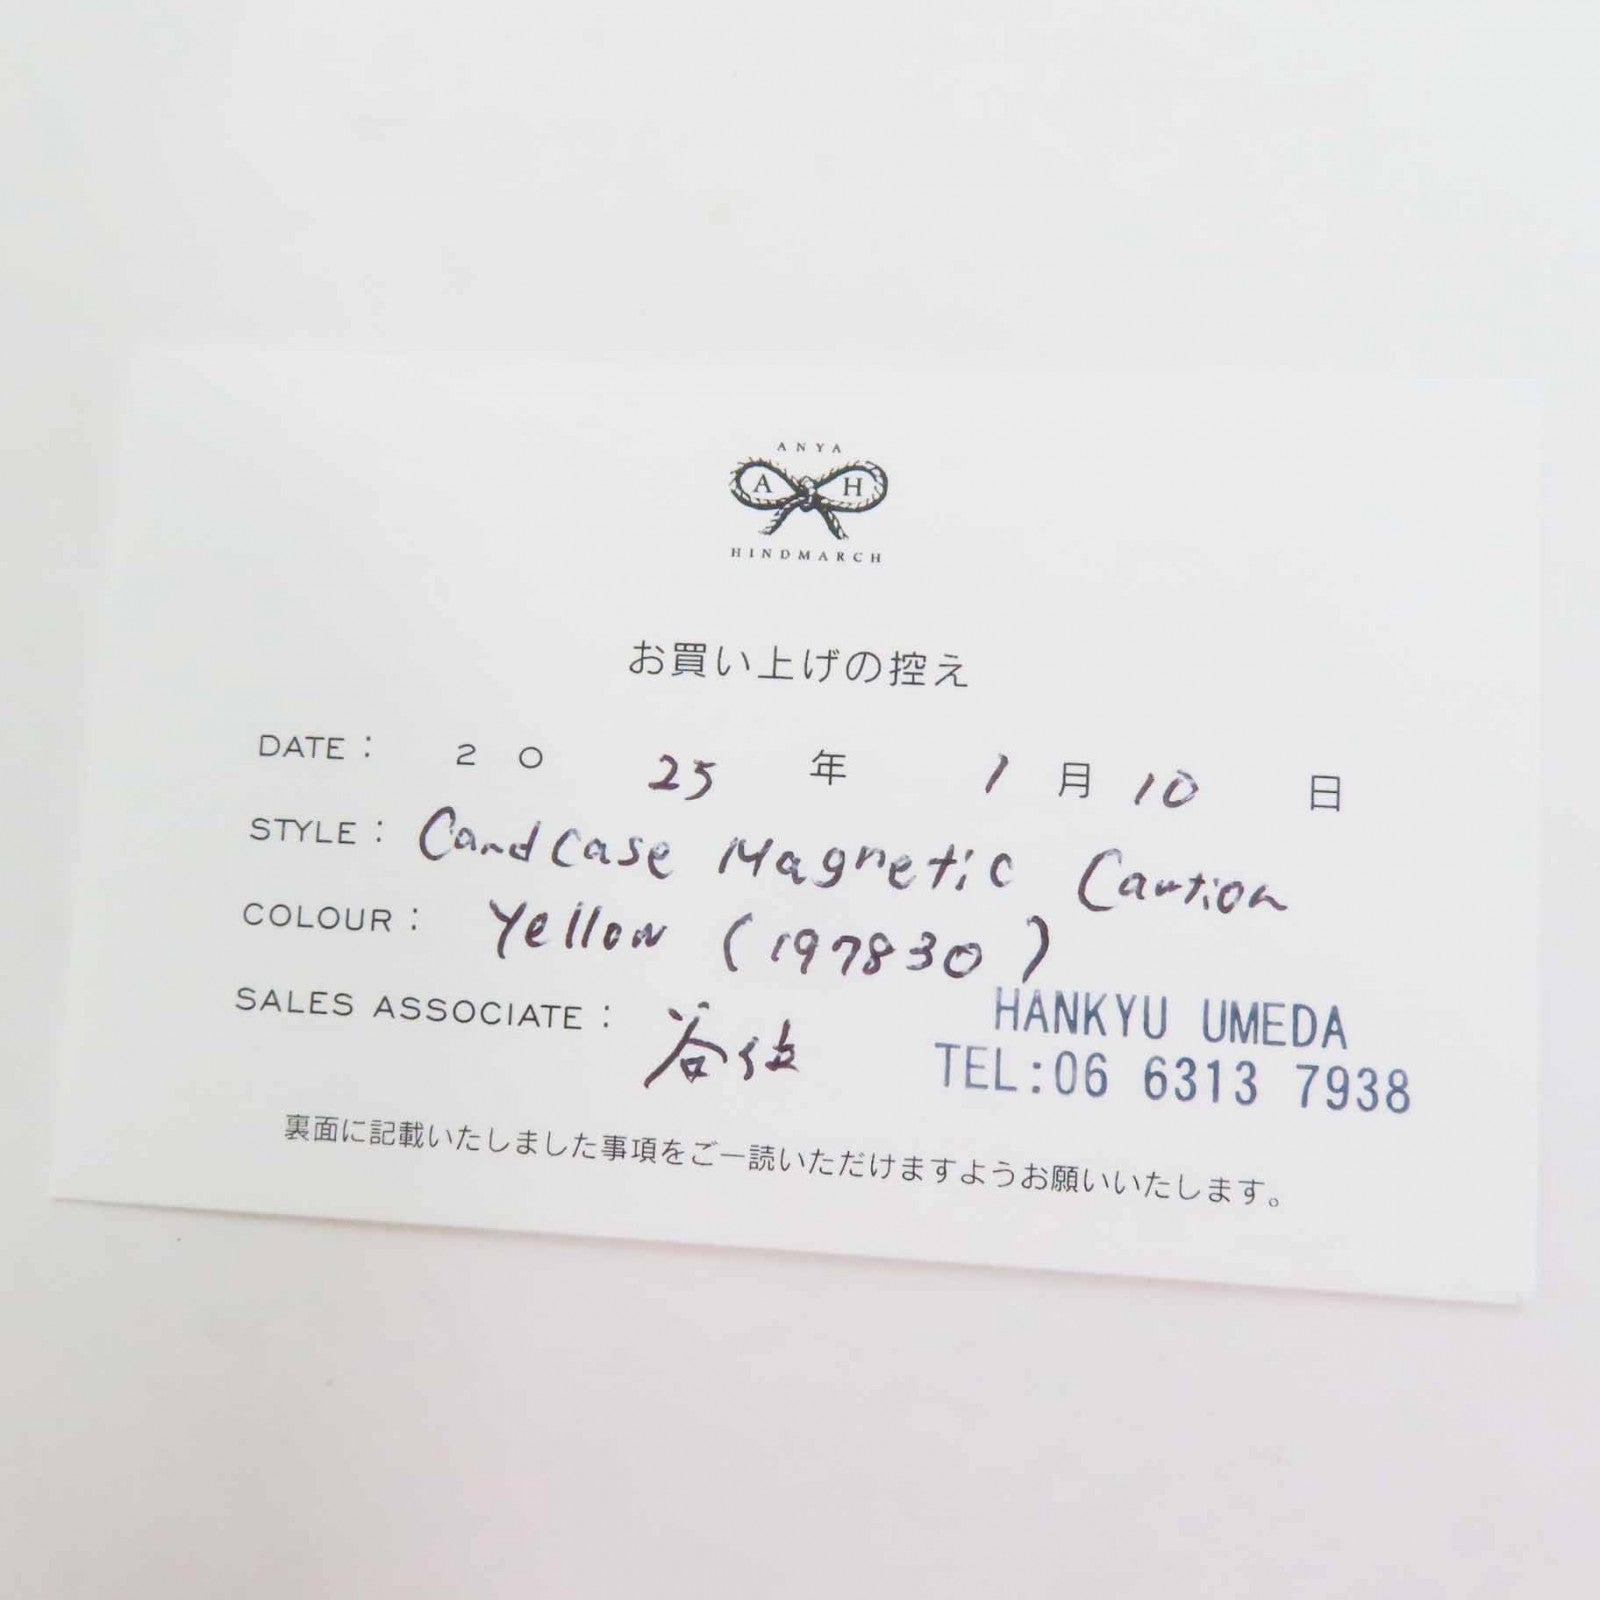 ANYA
A H
HINDMARCH
お買い上げの控え
DATE： 20 25 年 1 月 10 日
STYLE： Card Case Magnetic Caution
COLOUR： Yellow (197830)
SALES ASSOCIATE： 谷位
HANKYU UMEDA
TEL:06 6313 7938
裏面に記載いたしました事項をご一読いただけますようお願いいたします。